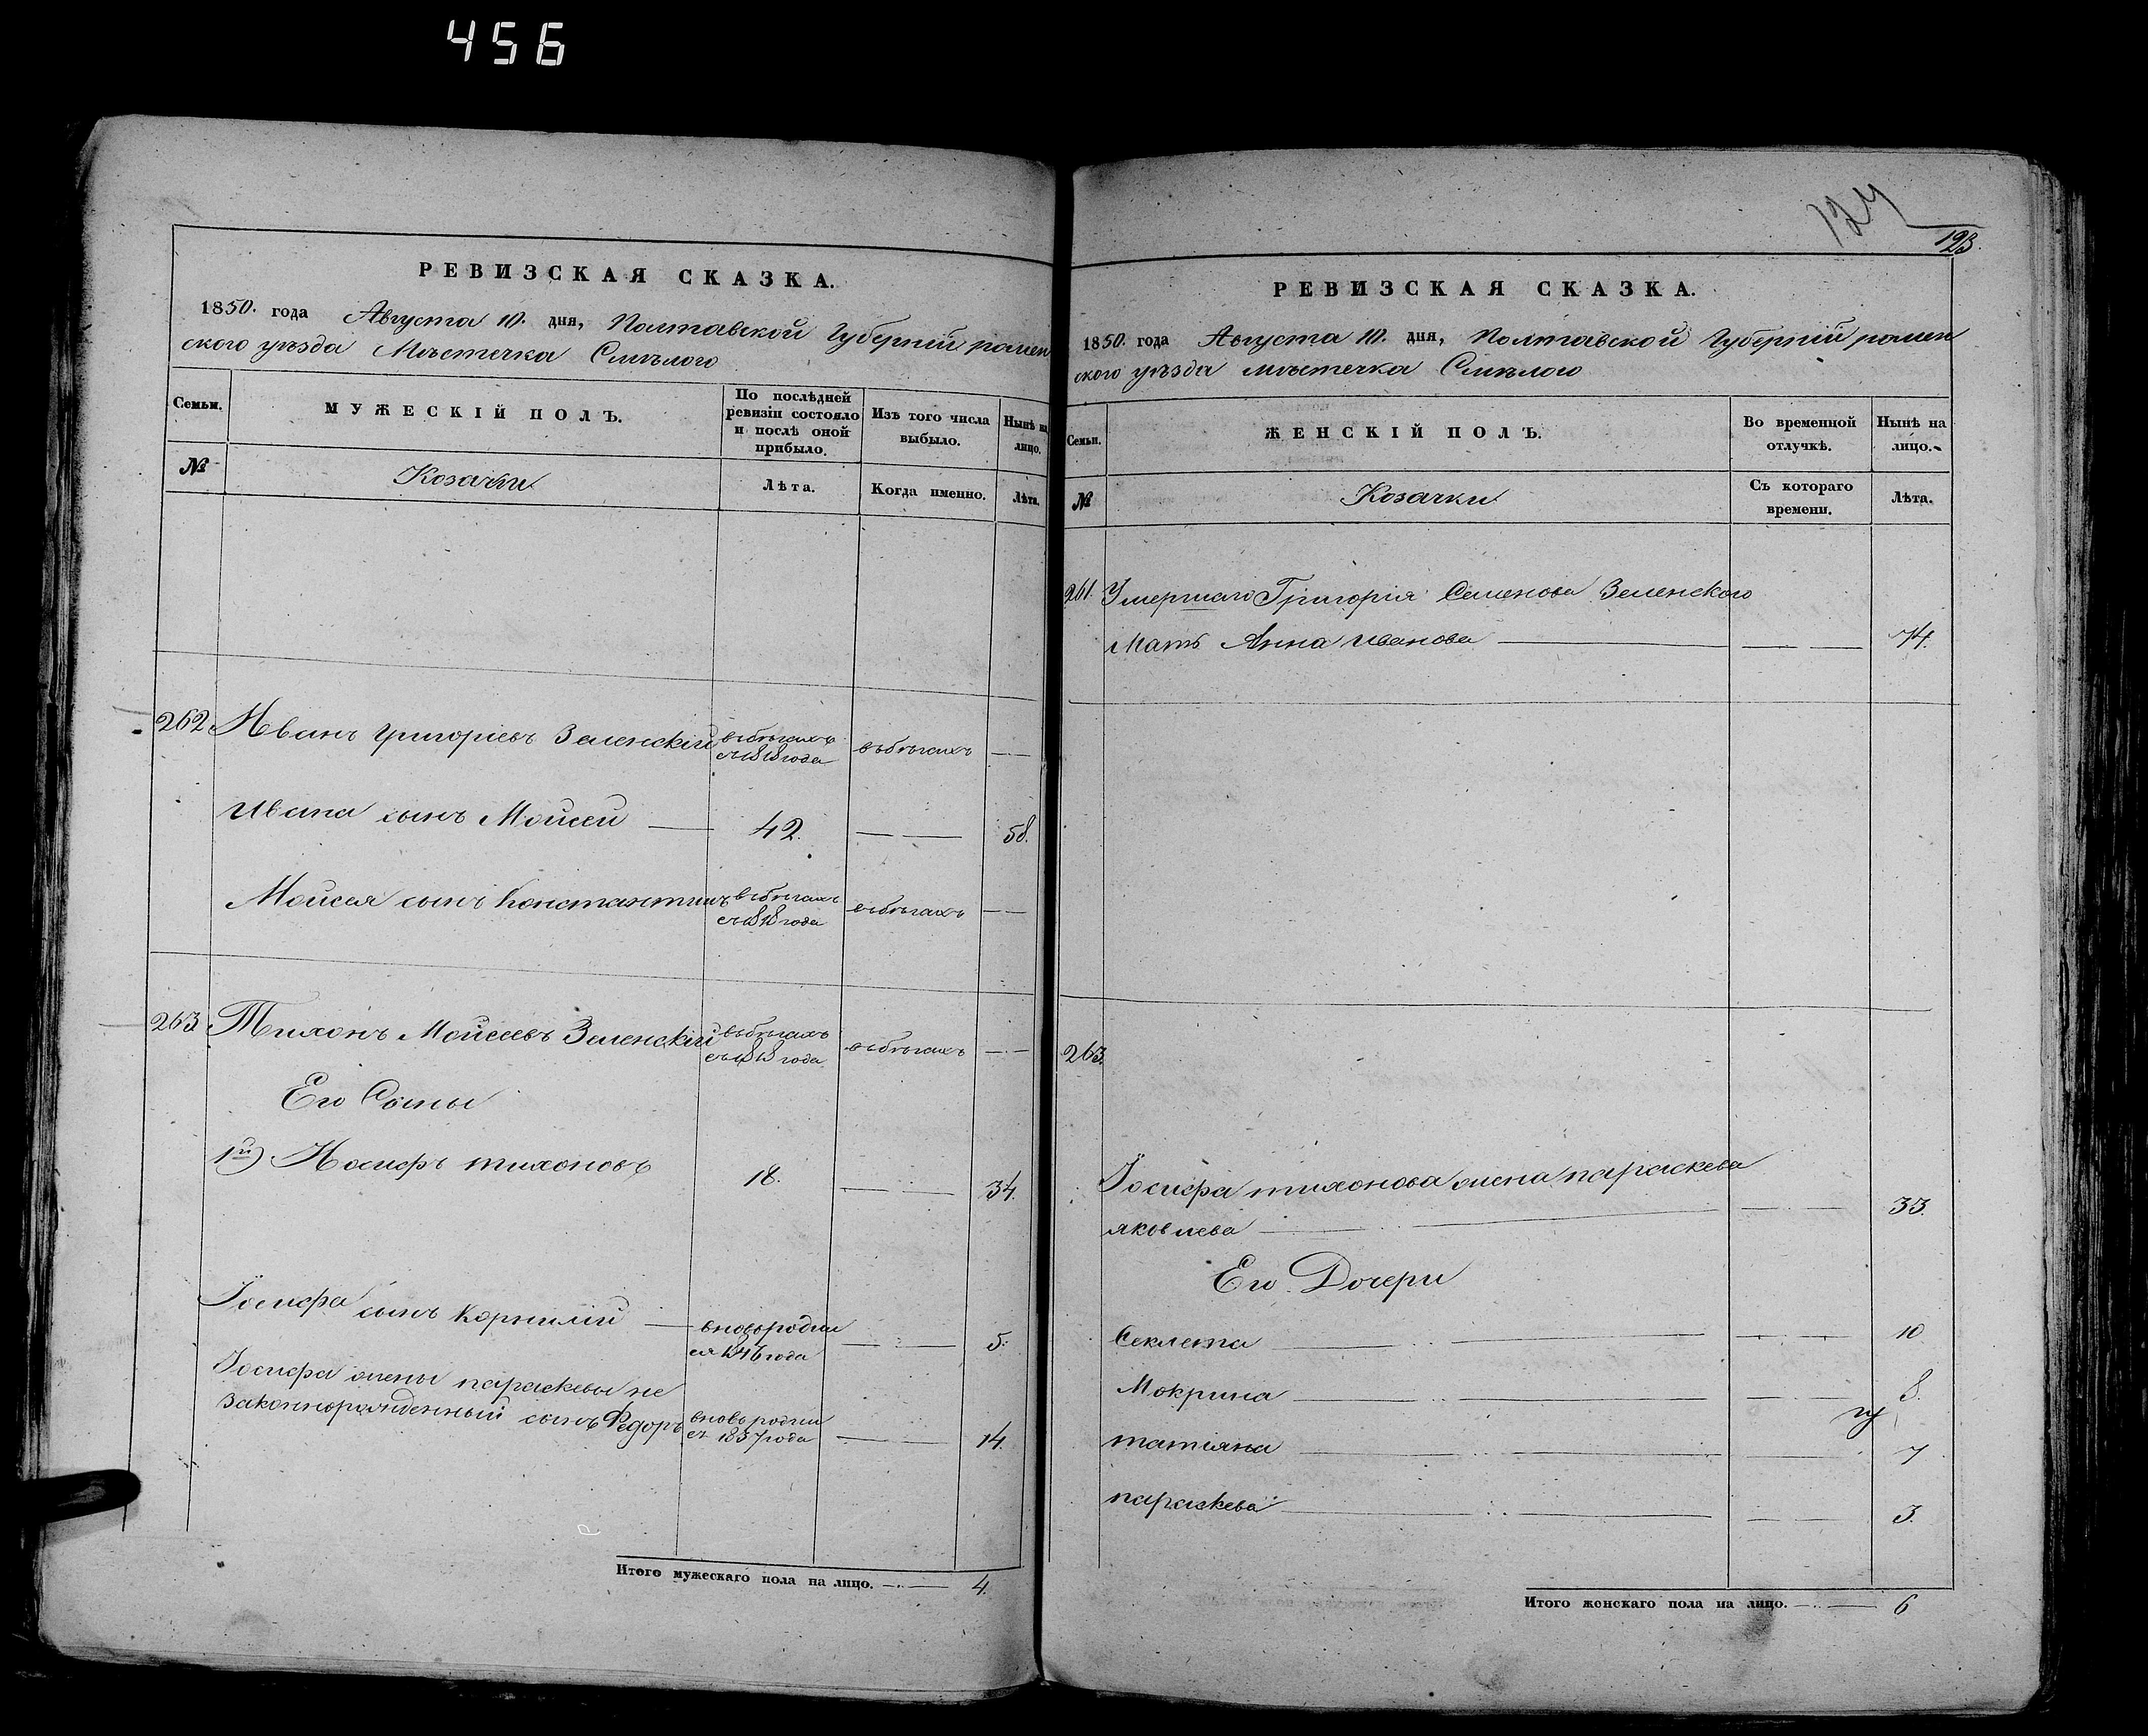 456
РЕВИЗСКАЯ СКАЗКА.
1850. года Августа 10. дня, Полтавской Губерніи ромен
ского уѣзда Мѣстечка Смѣлого
Семьи.
МУЖЕСКІЙ ПОЛЪ.
По послѣдней
ревизіи состояло
и послѣ оной
прибыло.
Изъ того числа
выбыло.
Нынѣ на
лицо.
№
Козачьи
Лѣта.
Когда именно.
Лѣта.
262 Иванъ Григоріевъ Зеленскій вбѣгахъ въбѣгахъ — —
съ1818года
Ивана сынъ Мойсей — 42. — — 58.
Мойсея сынъ Константинъ вбѣгахъ въбѣгахъ — —
съ1818года
263 Тихонъ Мойсеевъ Зеленскій вбѣгахъ въбѣгахъ — —
съ1818года
Его Сыны
1й) Иосифъ тихоновъ 18. — — 34.
Іосифа сынъ Корнилій — вновь родил 5.
ся 1846 года
Іосифа жены параскевы не
законнорожденный сынъ Федоръ вновь родил — 14.
съ 1837 года
Итого мужескаго пола на лицо. — 4.
124
123.
РЕВИЗСКАЯ СКАЗКА.
1850. года Августа 10. дня, Полтавской Губерніи ромен
ского уѣзда мѣстечка Смѣлого
Семьи.
ЖЕНСКІЙ ПОЛЪ.
Во временной
отлучкѣ.
Нынѣ на
лицо.
№
Козачки
Съ котораго
времени.
Лѣта.
261. Умершаго Григорія Семенова Зеленского
Мать Анна Иванова — — — 74.
263.
Іосифа тихонова жена параскева
яковлева — — — 33.
Его Дочери
Секлета — — — 10
Мокрина — — — 8.
татіяна — — — 7
параскева — — — 3.
Итого женскаго пола на лицо. — 6